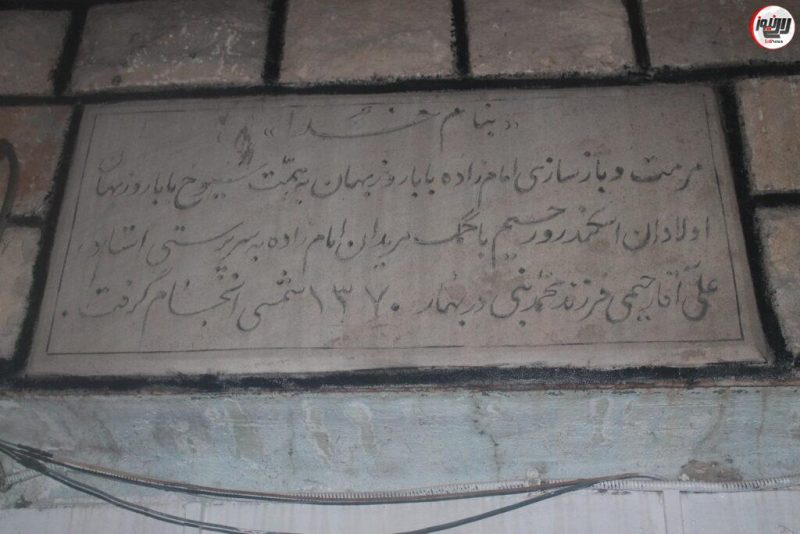 «بنام خدا»
مرمت و بازسازی امام زاده بابا روزبهان به همّت شیوخ بابا روزبهان
اولادان اسکندر و رحیم با کمک مریدان امام زاده به سرپرستی استاد
علی آقا رحیمی فرزند محمد نبی در بهار ۱۳۷۰ شمسی انجام گرفت.